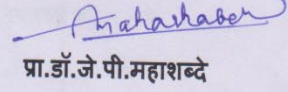 Mahashabde
प्रा.डॉ.जे.पी.महाशब्दे